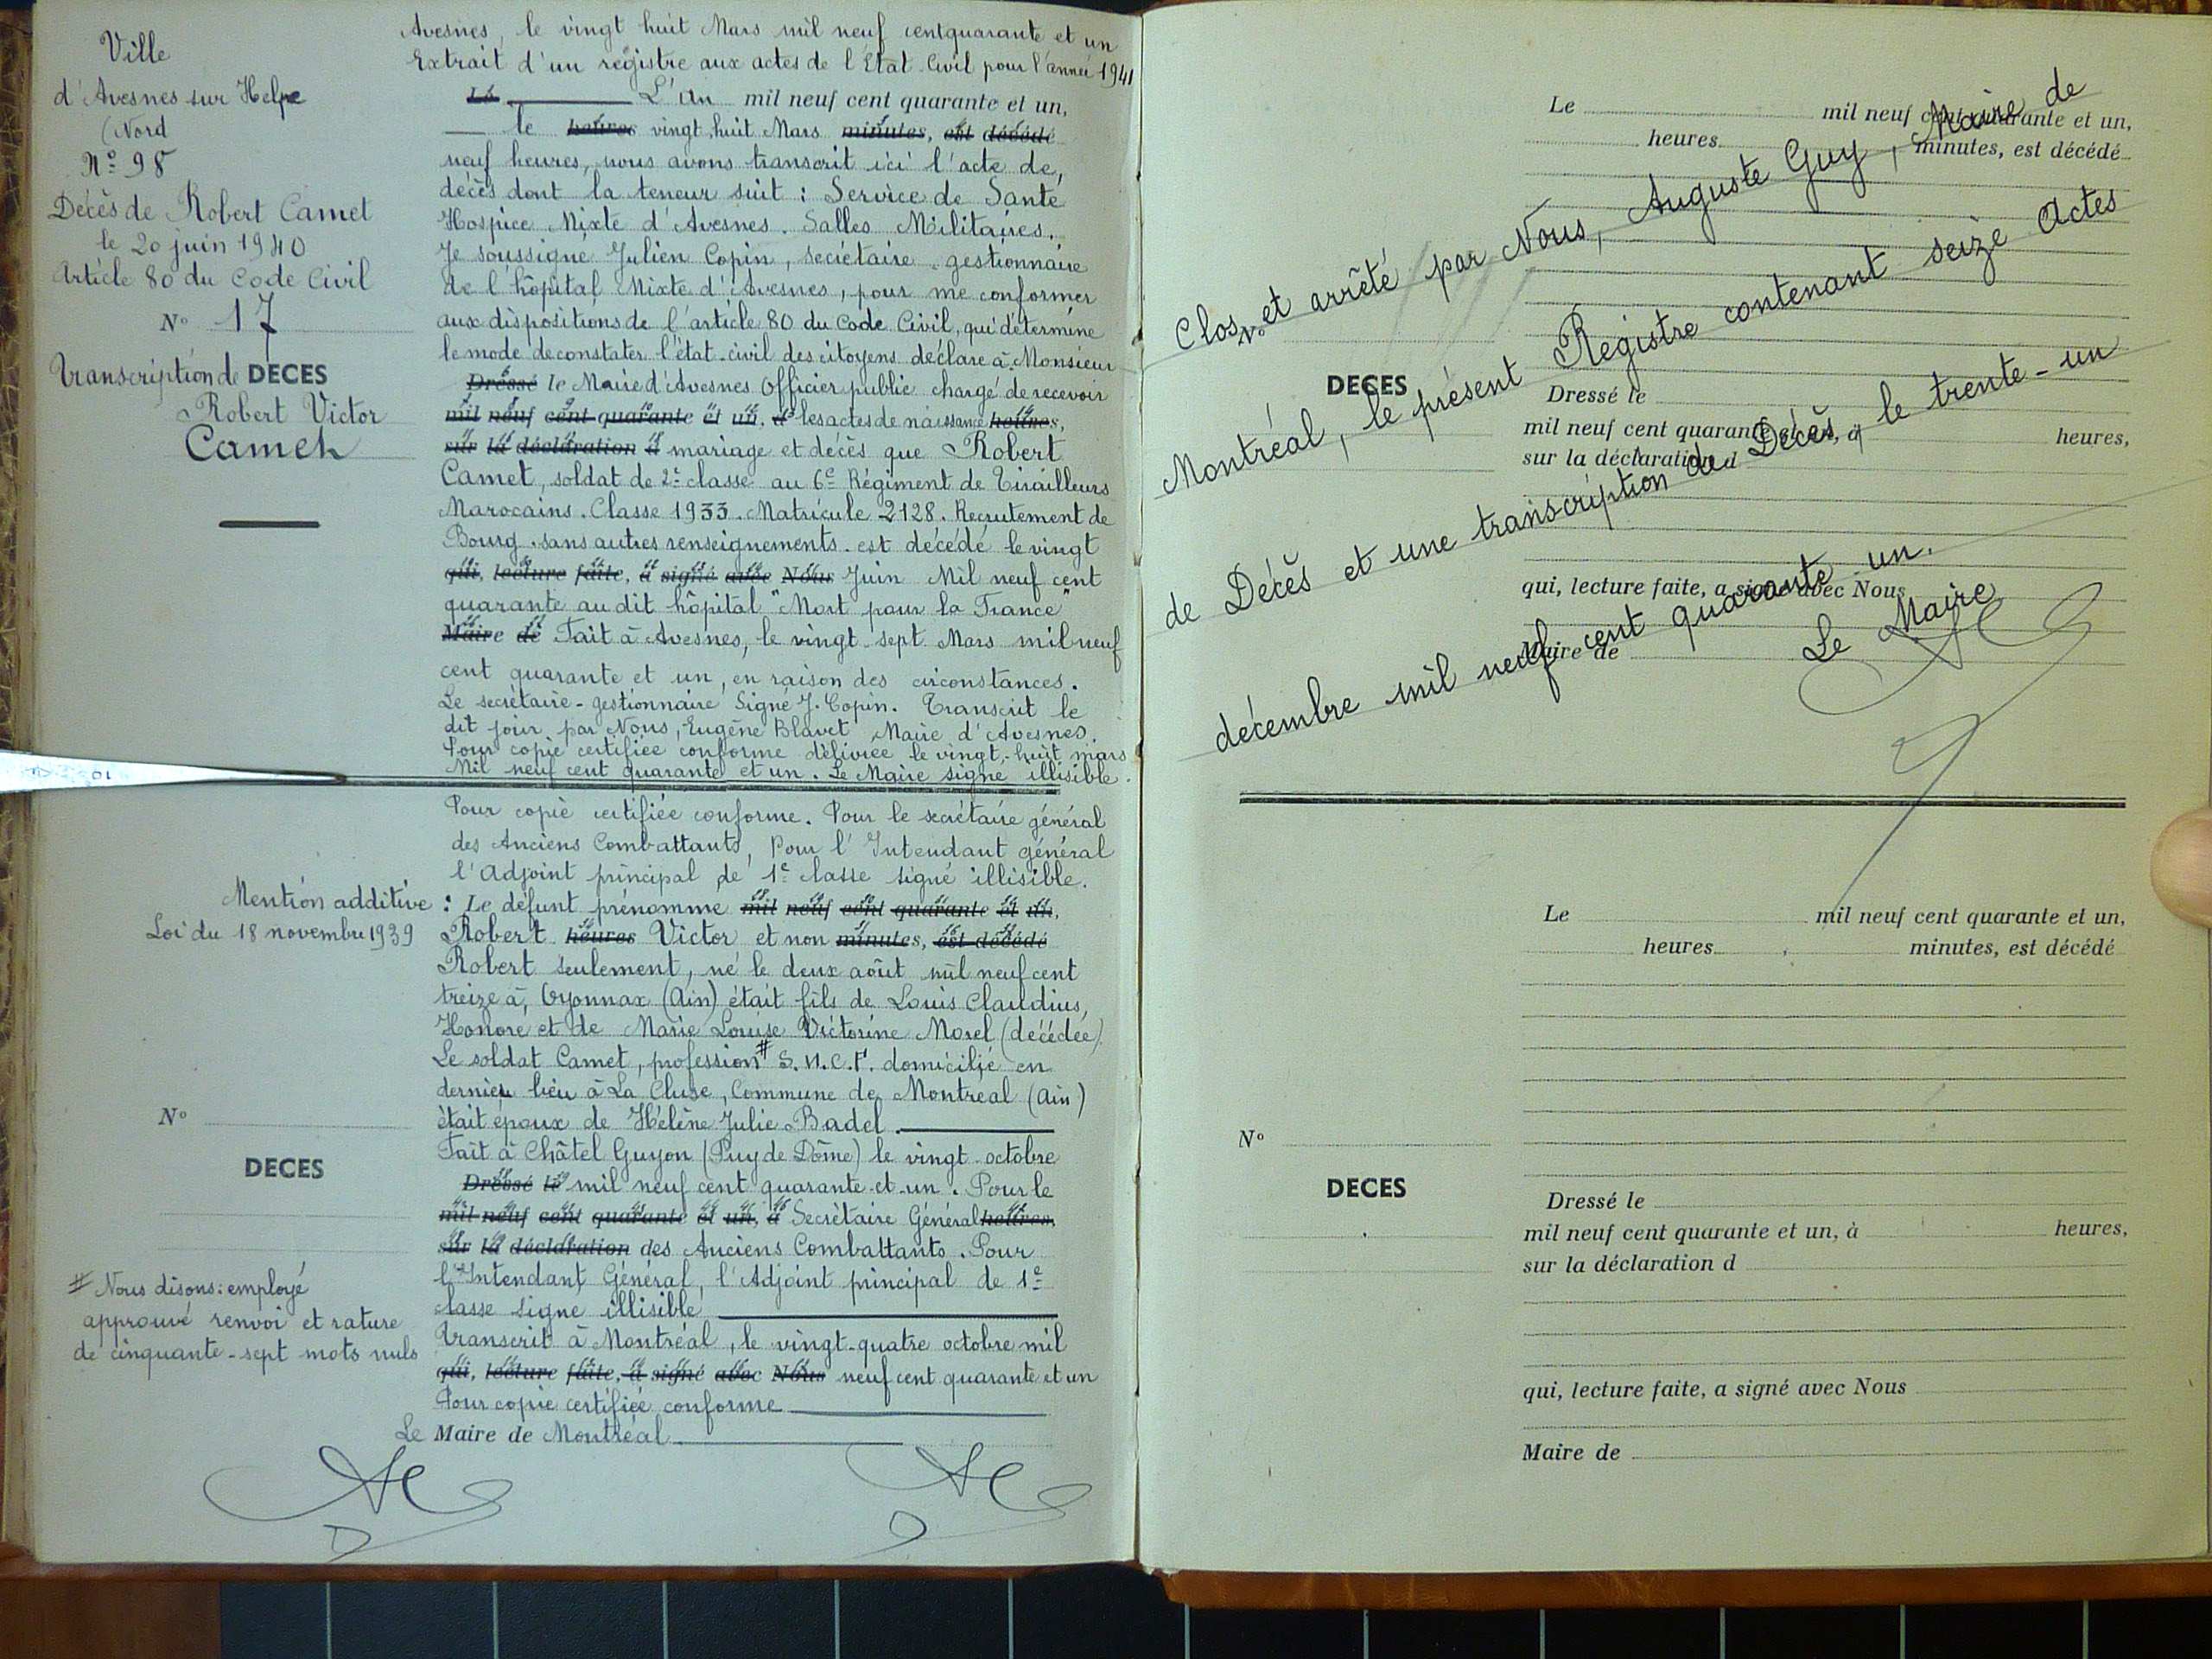 Ville
d'Avesnes sur Helpe
(Nord
N° 98
Décès de Robert Camet
le 20 juin 1940
Article 80 du Code Civil
N° 17
Transcription de DECES
Robert Victor
Camet
Avesnes, le vingt huit Mars mil neuf cent quarante et un
Extrait d'un registre aux actes de l'Etat-Civil pour l'année 1941
Le L'An mil neuf cent quarante et un,
le heures vingt huit Mars minutes, est décédé
neuf heures, nous avons transcrit ici l'acte de,
décès dont la teneur suit : Service de Santé
Hospice Mixte d'Avesnes. Salles Militaires.
Je soussigné Julien Copin, secrétaire gestionnaire
de l'hôpital Mixte d'Avesnes, pour me conformer
aux dispositions de l'article 80 du Code Civil, qui détermine
le mode de constater l'état-civil des citoyens déclare à Monsieur
Dressé le Maire d'Avesnes Officier public chargé de recevoir
mil neuf cent quarante et un, à les actes de naissance heures,
sur la déclaration d mariage et décès que Robert
Camet, soldat de 2e classe au 6e Régiment de Tirailleurs
Marocains. Classe 1933. Matricule 2128. Recrutement de
Bourg. sans autres renseignements. est décédé le vingt
qui, lecture faite, a signé avec Nous Juin Mil neuf cent
quarante au dit hôpital "Mort pour la France"
Maire de Fait à Avesnes, le vingt sept Mars mil neuf
cent quarante et un, en raison des circonstances.
Le secrétaire-gestionnaire Signé J. Copin. Transcrit le
dit jour par Nous, Eugène Blavet Maire d'Avesnes.
Pour copie certifiée conforme délivrée le vingt-huit mars
Mil neuf cent quarante et un. Le Maire signé illisible.
Pour copie certifiée conforme. Pour le secrétaire général
des Anciens Combattants, Pour l'Intendant général
l'Adjoint principal de 1e classe signé illisible.
Mention additive : Le défunt prénommé mil neuf cent quarante et un,
Loi du 18 novembre 1939 Robert heures Victor et non minutes, est décédé
Robert seulement, né le deux août mil neuf cent
treize à, Oyonnax (Ain) était fils de Louis Claudius,
Honoré et de Marie Louise Victorine Morel (décédée)
Le soldat Camet, profession # S.N.C.F. domicilié en
dernier lieu à La Cluse, Commune de Montréal (Ain)
était époux de Hélène Julie Badel.
Fait à Châtel Guyon (Puy de Dôme) le vingt octobre
Dressé le mil neuf cent quarante et un. Pour le
mil neuf cent quarante et un, à Secrétaire Général heures,
sur la déclaration des Anciens Combattants. Pour
l'Intendant Général, l'Adjoint principal de 1e
classe signé illisible
Transcrit à Montréal, le vingt-quatre octobre mil
qui, lecture faite, a signé avec Nous neuf cent quarante et un
Pour copie certifiée conforme
Le Maire de Montréal
N°
DECES
# Nous disons : employé
approuvé renvoi et rature
de cinquante-sept mots nuls
Clos et arrêté par Nous, Auguste Guy, Maire de
Montréal, le présent Registre contenant seize Actes
de Décès et une transcription de Décès, le trente-un
décembre mil neuf cent quarante un.
Le Maire
Le mil neuf cent quarante et un,
heures minutes, est décédé
N°
DECES
Dressé le
mil neuf cent quarante et un, à heures,
sur la déclaration d
qui, lecture faite, a signé avec Nous
Maire de
Le mil neuf cent quarante et un,
heures minutes, est décédé
N°
DECES
Dressé le
mil neuf cent quarante et un, à heures,
sur la déclaration d
qui, lecture faite, a signé avec Nous
Maire de